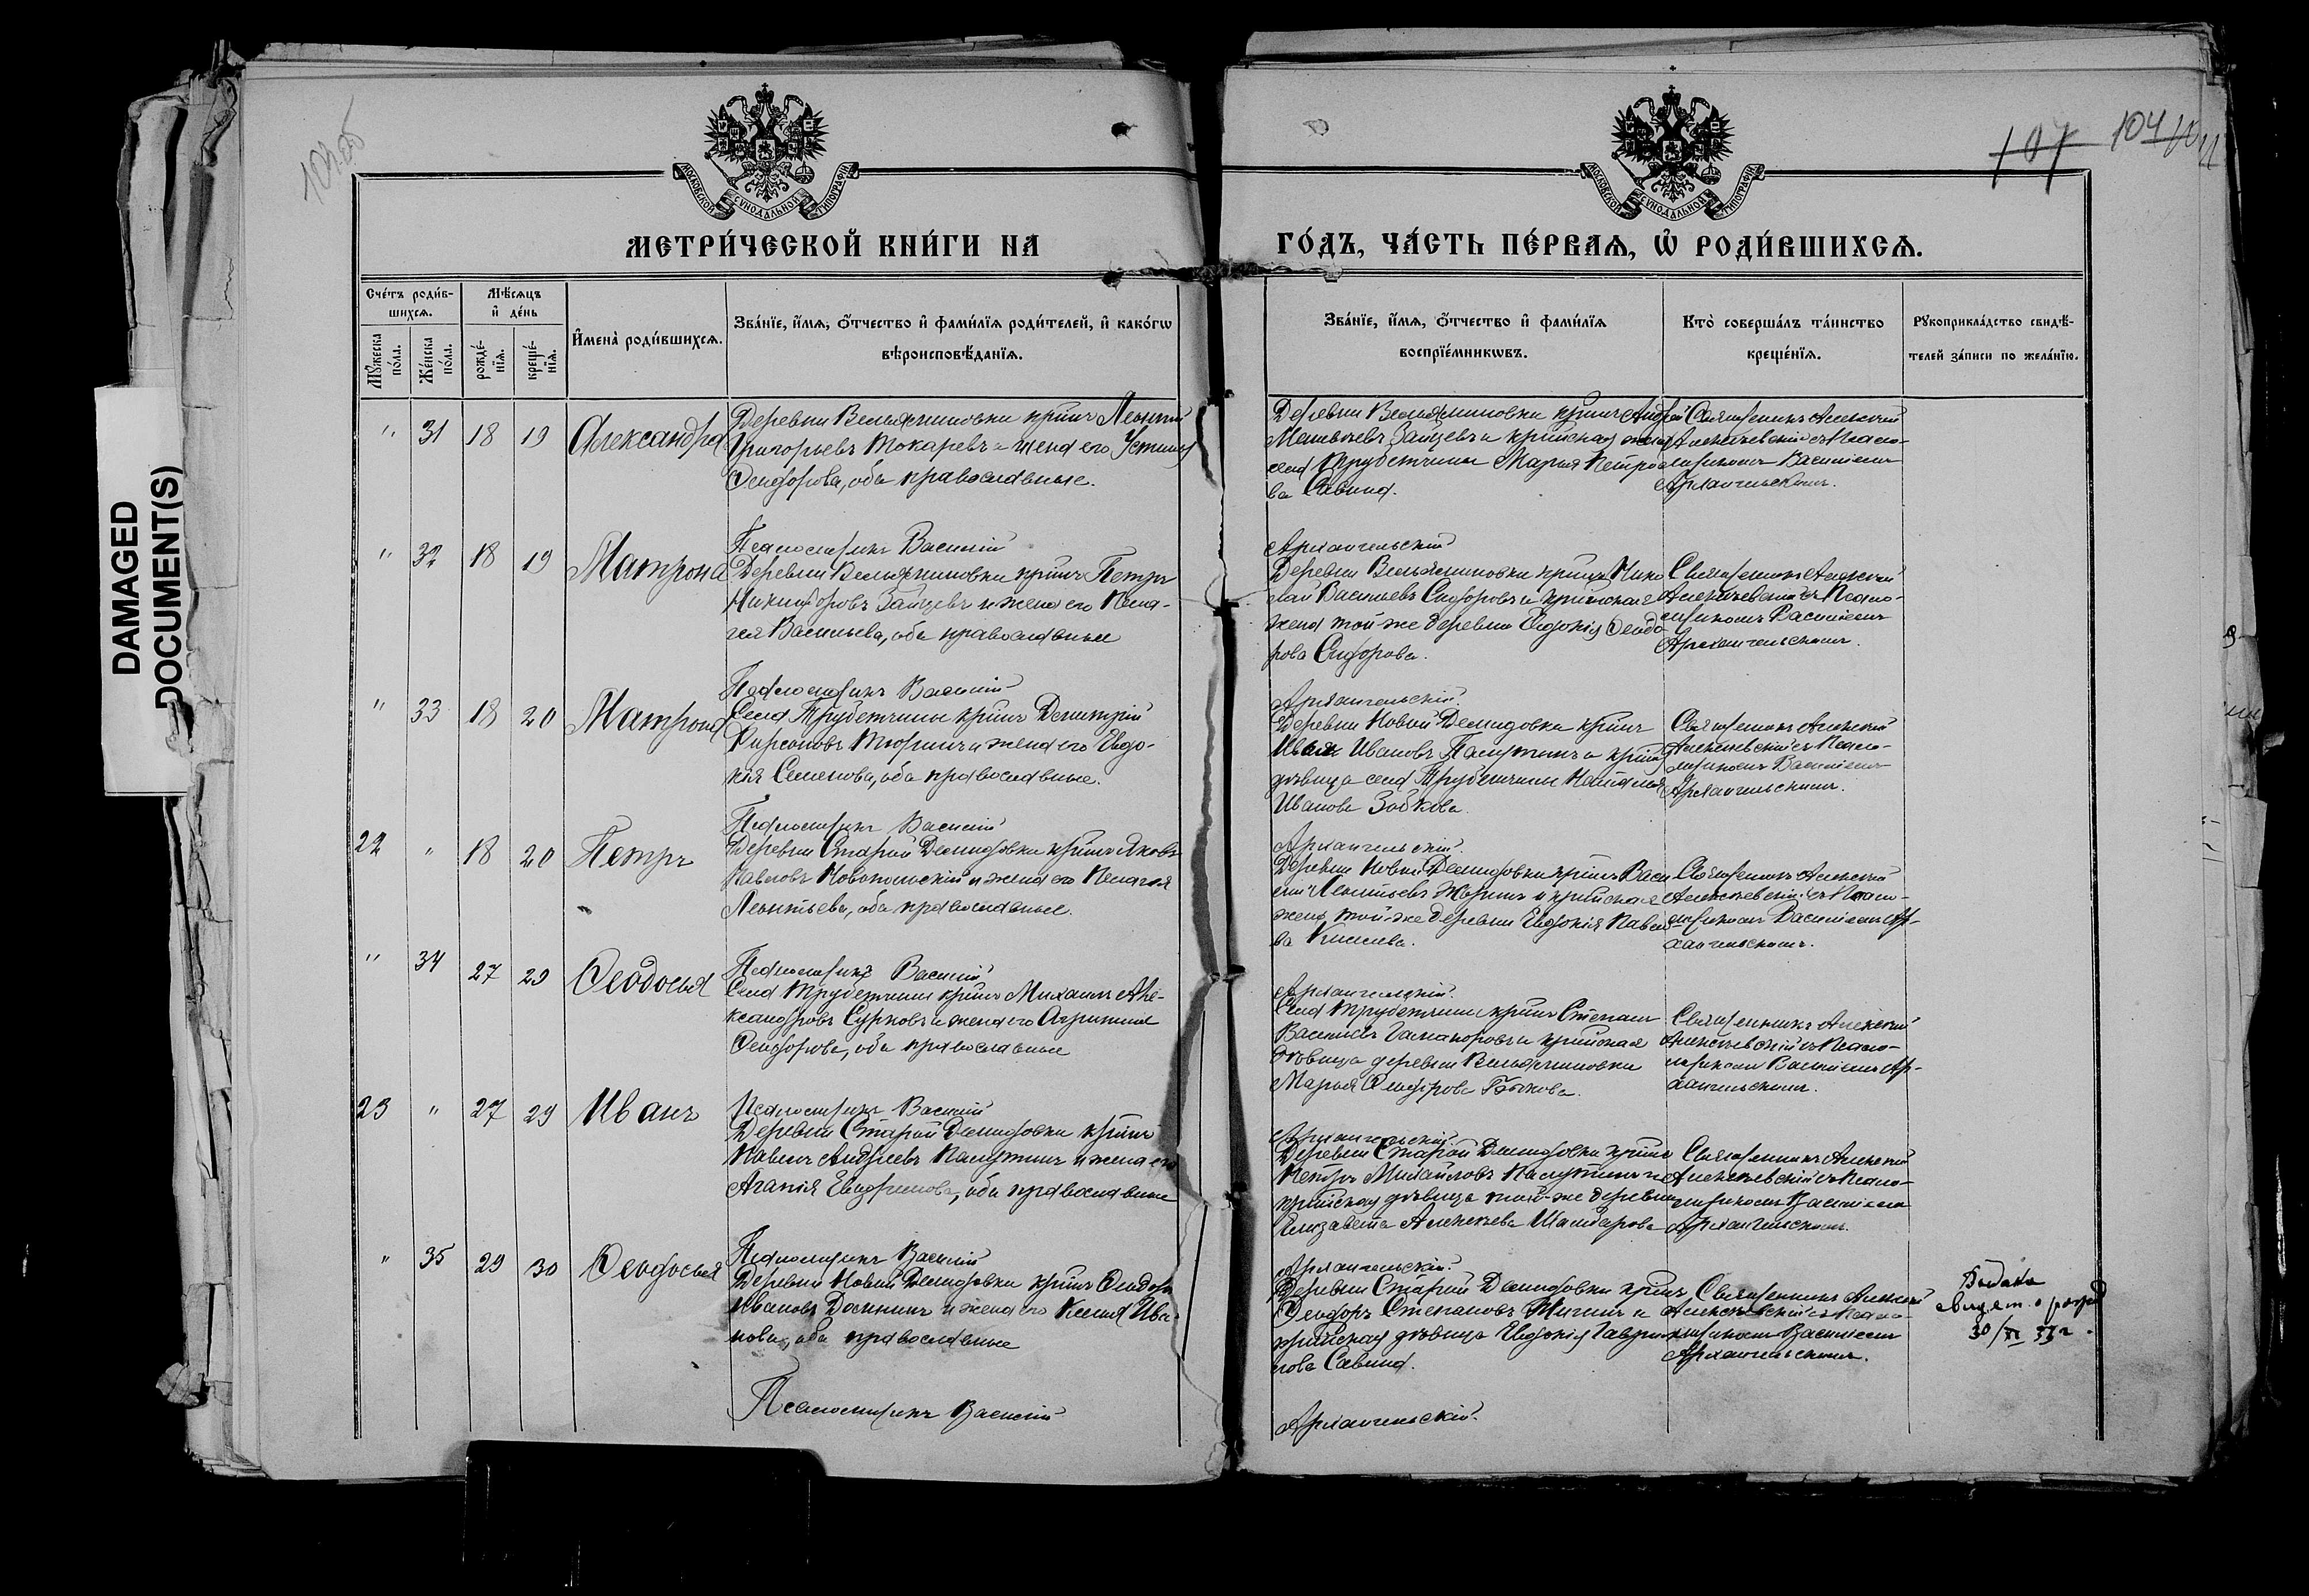 DAMAGED
DOCUMENT(S)
107 104
МОСКОВСКОЙ СѴНОДАЛЬНОЙ ТИПОГРАФІИ
МОСКОВСКОЙ СѴНОДАЛЬНОЙ ТИПОГРАФІИ
МЕТРИ́ЧЕСКОЙ КНИ́ГИ НА
ГО́ДЪ, ЧА́СТЬ ПЕ́РВАѦ, Ѡ҆ РОДИ́ВШИХСѦ.
Сче́тъ роди́в-
шихсѧ.
Мꙋ́жеска
по́ла.
Же́нска
по́ла.
Мѣ́сѧцъ
и҆ де́нь
рожде́-
нїѧ.
креще́-
нїѧ.
И҆мена̀ роди́вшихсѧ.
Зва́нїе, и҆́мѧ, ѻ҆́тчество и҆ фами́лїѧ роди́телей, и҆ како́гѡ
вѣроисповѣ́данїѧ.
Зва́нїе, и҆́мѧ, ѻ҆́тчество и҆ фами́лїѧ
воспрїе́мникѡвъ.
Кто̀ соверша́лъ та́инство
креще́нїѧ.
Рꙋкоприкла́дство свидѣ́-
телей за́писи по жела́нїю.
" 31 18 19 Александра
Деревни Вельяминовки крнинъ Леонтій
Григорьевъ Токаревъ и жена его Устинья
Ѳеодорова, оба православные.
Деревни Вельяминовки крнинъ Андрей
Зайцевъ и крестьянская жена
села Трубетчины Марья Петро-
ва Савина.
Священникъ Алексій
Алексѣевскій съ Псало-
мщикомъ Василіемъ
Архангельскимъ.
Псаломщикъ Василій
Архангельскій
" 32 18 19 Матрона
Деревни Вельяминовки крнинъ Петръ
Никифоровъ Зайцевъ и жена его Пела-
гея Васильева, оба православные
Деревни Вельяминовки крнинъ Нико
лай Васильевъ Сидоровъ и крестьянская
жена той-же деревни Евдокія Ѳеодо-
рова Сидорова.
Священникъ Алексій
Алексѣевскій съ Псало-
мщикомъ Василіемъ
Архангельскимъ.
Псаломщикъ Василій
Архангельскій.
" 33 18 20 Матрона
Села Трубетчины крнинъ Димитрій
Кирсановъ Тюринъ и жена его Евдо-
кія Семенова, оба православные.
Деревни Новой Демидовки крнинъ
Иванъ Ивановъ Палутинъ и
дѣвица села Трубетчины Наталія
Иванова Зобкова.
Священникъ Алексій
Алексѣевскій съ Псало-
мщикомъ Василіемъ
Архангельскимъ.
Псаломщикъ Василій
Архангельскій.
22 " 18 20 Петръ
Деревни Старой Демидовки крнинъ Яковъ
Павловъ Новопольскій и жена его Пелагея
Леонтьева, оба православные.
Деревни Новой Демидовки крнинъ Васи
лій Леонтьевъ и крестьянская
жена той-же деревни Евдокія Павло-
ва
Священникъ Алексій
Алексѣевскій съ Псало-
мщикомъ Василіемъ Ар-
хангельскимъ.
Псаломщикъ Василій
Архангельскій.
" 34 27 29 Ѳеодосья
Села Трубетчины крнинъ Михаилъ Але-
ксандровъ Сурковъ и жена его Агрипина
Ѳеодорова, оба православные
Села Трубетчины крнинъ Степанъ
Васильевъ и крестьянская
дѣвица деревни Вельяминовки
Марья Ѳеодорова Быкова.
Священникъ Алексій
Алексѣевскій съ Псало-
мщикомъ Василіемъ Ар-
хангельскимъ.
Псаломщикъ Василій
Архангельскій.
23 " 27 29 Иванъ
Деревни Старой Демидовки крнинъ
Павелъ Андреевъ Палутинъ и жена его
Агапія Евдокимова, оба православные
Деревни Старой Демидовки крнинъ
Петръ Михайловъ Палутинъ и
крестьянская дѣвица той-же деревни
Елизавета Алексѣева
Священникъ Алексій
Алексѣевскій съ Псало-
мщикомъ Василіемъ
Архангельскимъ.
Псаломщикъ Василій
Архангельскій.
" 35 29 30 Ѳеодосья
Деревни Новой Демидовки крнинъ Ѳеодоръ
Ивановъ и жена его Ксенія Ива-
нова, оба православные
Деревни Старой Демидовки крнинъ
Ѳеодоръ Степановъ и
крестьянская дѣвица Евдокія Гаври-
лова Савина.
Священникъ Алексій
Алексѣевскій съ Псало-
мщикомъ Василіемъ
Архангельскимъ.
Выдано
свидет. о рожд
30/XI
Псаломщикъ Василій
Архангельскій.